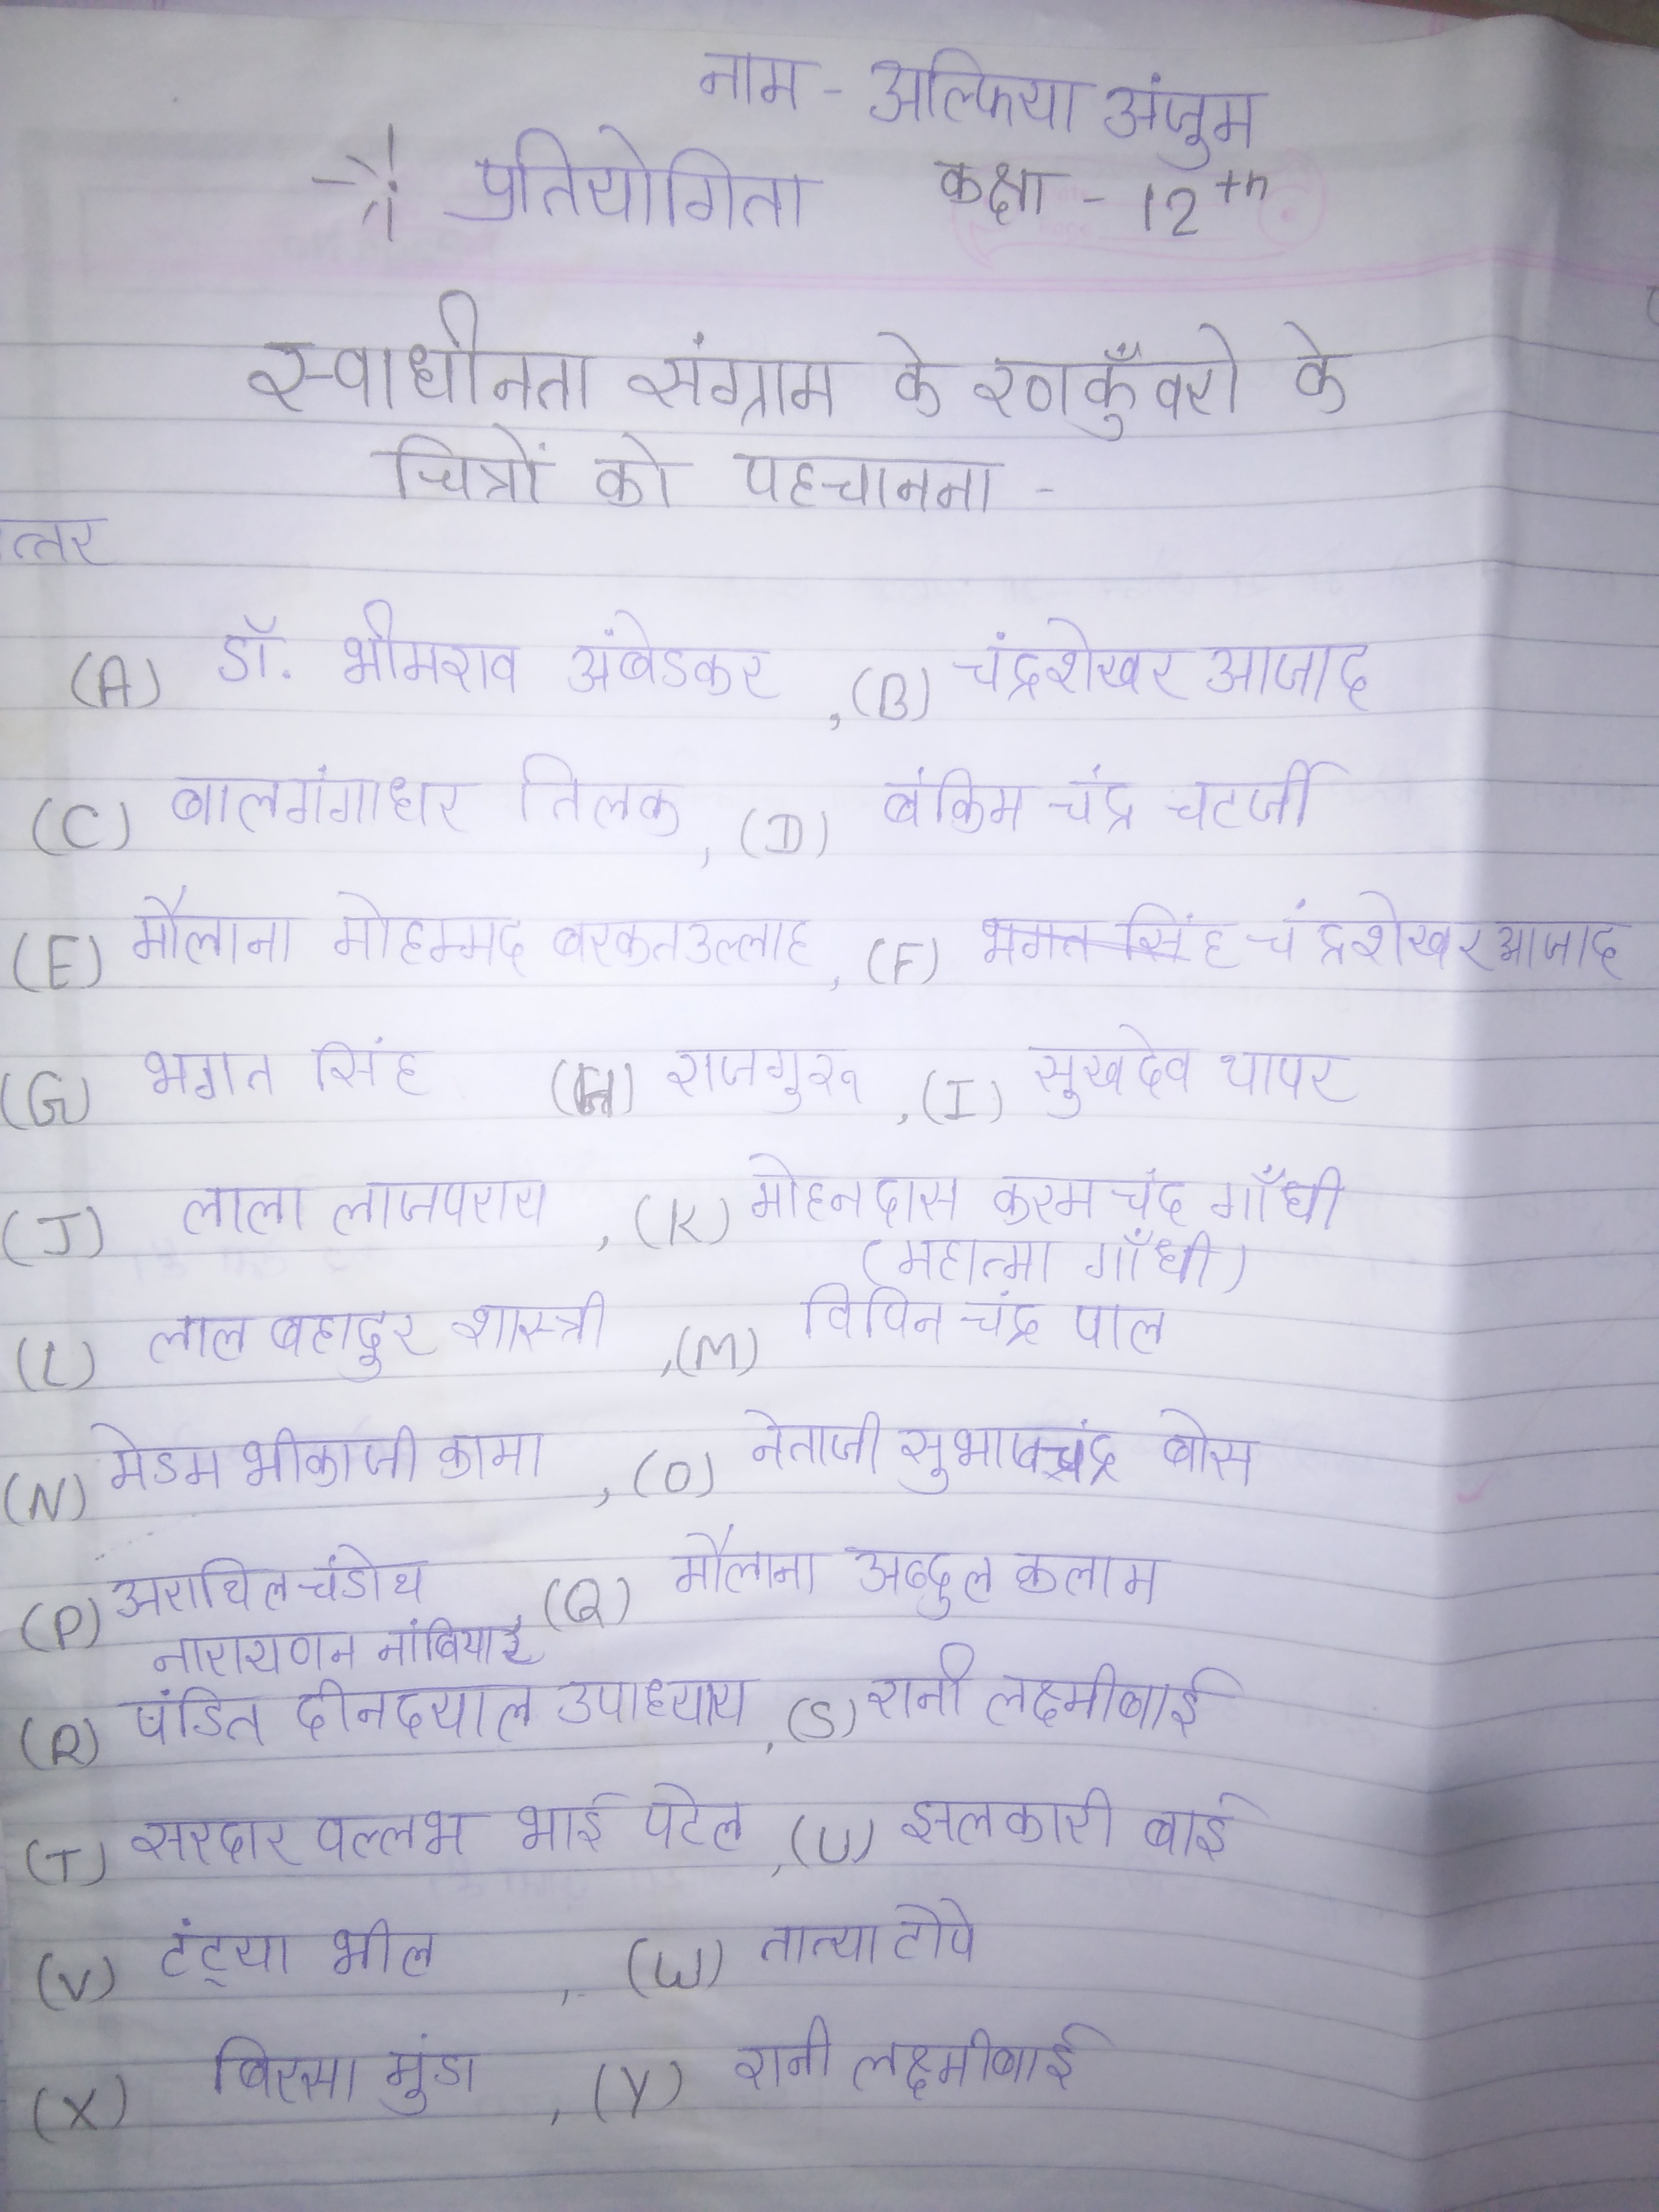 नाम - अल्फिया अंजुम
प्रतियोगिता कक्षा - 12th
स्वाधीनता संग्राम के रणकुँवरो के
चित्रों को पहचानना -
त्तर
(A) डॉ. भीमराव अंबेडकर , (B) चंद्रशेखर आजाद
(C) बालगंगाधर तिलक , (D) बंकिम चंद्र चटर्जी
(E) मौलाना मोहम्मद बरकतउल्लाह , (F) भगत सिंह चंद्रशेखर आजाद
(G) भगत सिंह (H) राजगुरू , (I) सुखदेव थापर
(J) लाला लाजपराय , (K) मोहनदास करमचंद गाँधी
(महात्मा गाँधी)
(L) लाल बहादुर शास्त्री , (M) विपिन चंद्र पाल
(N) मेडम भीकाजी कामा , (O) नेताजी सुभाषचंद्र बोस
(P) अराथिल चंडोथ (Q) मौलाना अब्दुल कलाम
नारायणन नांबियार
(R) पंडित दीनदयाल उपाध्याय , (S) रानी लक्ष्मीबाई
(T) सरदार वल्लभ भाई पटेल , (U) झलकारी बाई
(V) टंट्या भील , (W) तात्या टोपे
(X) बिरसा मुंडा , (Y) रानी लक्ष्मीबाई